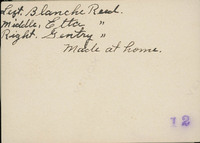 Left. Blanche Reed.
Middle, Etta "
Right. Gentry "
Made at home.
12